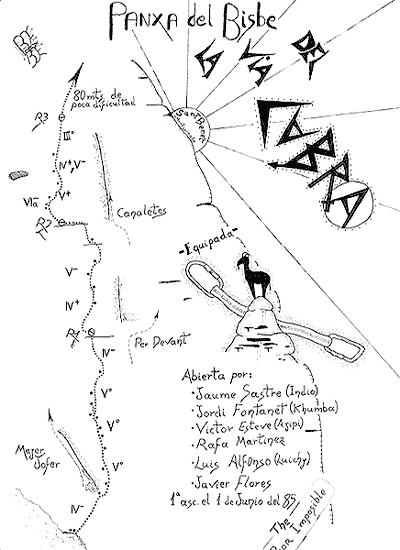 PANXA del Bisbe
LA
VIA
DEL
CABRA
80 mts. de
poca dificultad
Sant Benet
R3
III°
IV+, V-
V+
VIa
R2
Canaletes
-Equipada-
V-
IV+
R1
Per Devant
IV-
V°
V°
IV-
Abierta por:
·Jaume Sastre (Indio)
·Jordi Fontanet (Khumba)
·Victor Esteve (Azipi)
·Rafa Martinez
·Luis Alfonso (Luichy)
·Javier Flores
1ª asc. el 1 de Junio del 85
The
Imposible